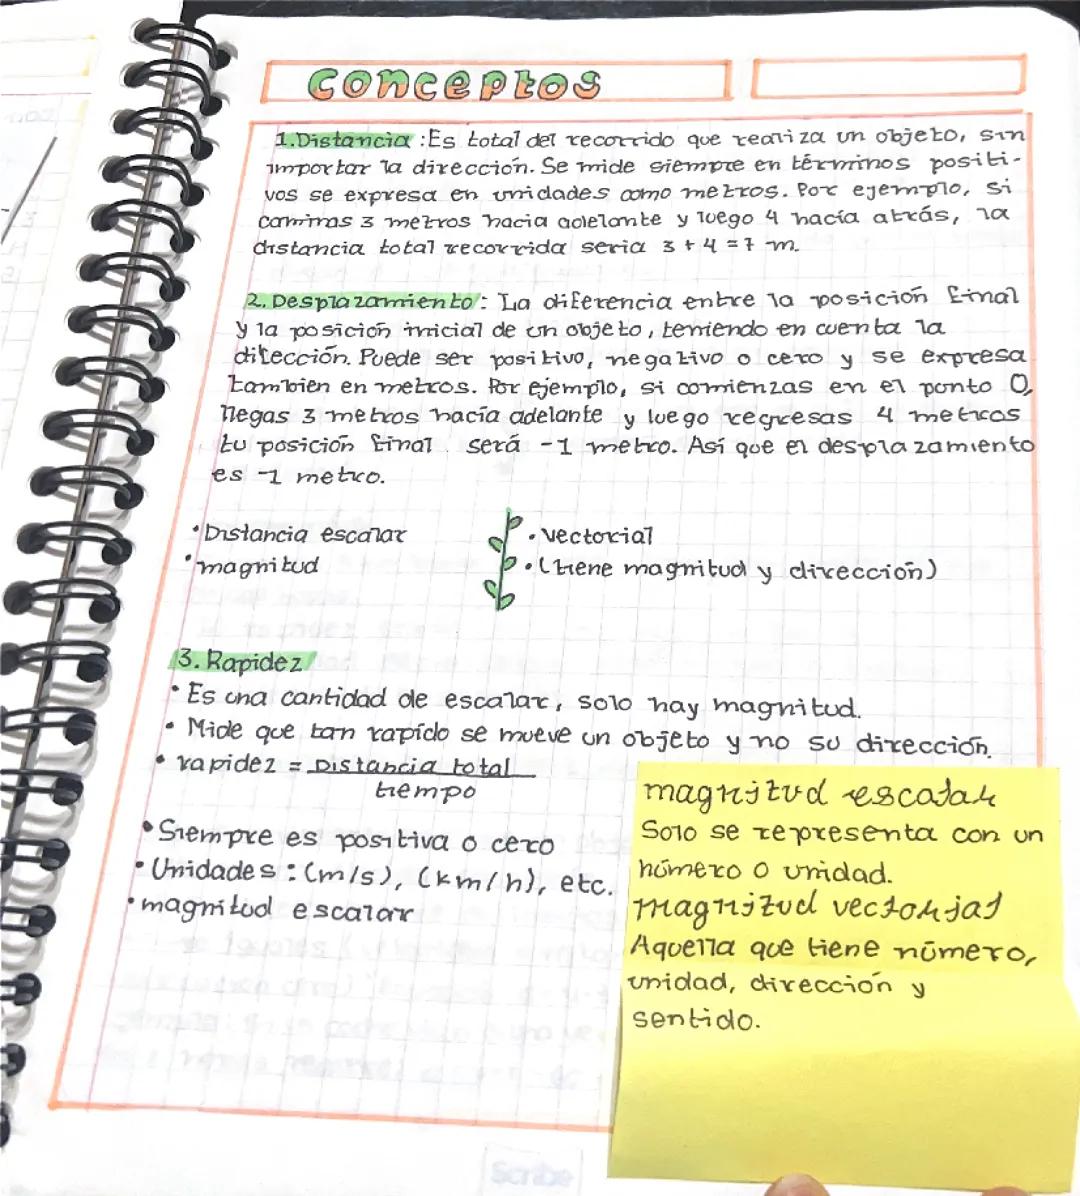 conceptos
1. Distancia : Es total del recorrido que realiza un objeto, sin
importar la dirección. Se mide siempre en términos positi-
vos se expresa en unidades como metros. Por ejemplo, si
caminas 3 metros hacia adelante y luego 4 hacía atrás, la
distancia total recorrida seria 3 + 4 = 7 m.
2. Desplazamiento : La diferencia entre la posición final
y la posición inicial de un objeto, teniendo en cuenta la
dirección. Puede ser positivo, negativo o cero y se expresa
tambien en metros. Por ejemplo, si comienzas en el punto 0,
llegas 3 metros hacía adelante y luego regresas 4 metros
tu posición final. será -1 metro. Así que el desplazamiento
es -1 metro.
• Distancia escalar
• magnitud
• vectorial
• (tiene magnitud y dirección)
3. Rapidez
• Es una cantidad de escalar, solo hay magnitud.
• Mide que tan rapído se mueve un objeto y no su dirección.
• rapidez = Distancia total
tiempo
• Siempre es positiva o cero
• Unidades : (m/s), (km/h), etc.
• magnitud escalar
magnitud escalar
Solo se representa con un
número o unidad.
magnitud vectorial
Aquella que tiene número,
unidad, dirección y
sentido.
Scribe